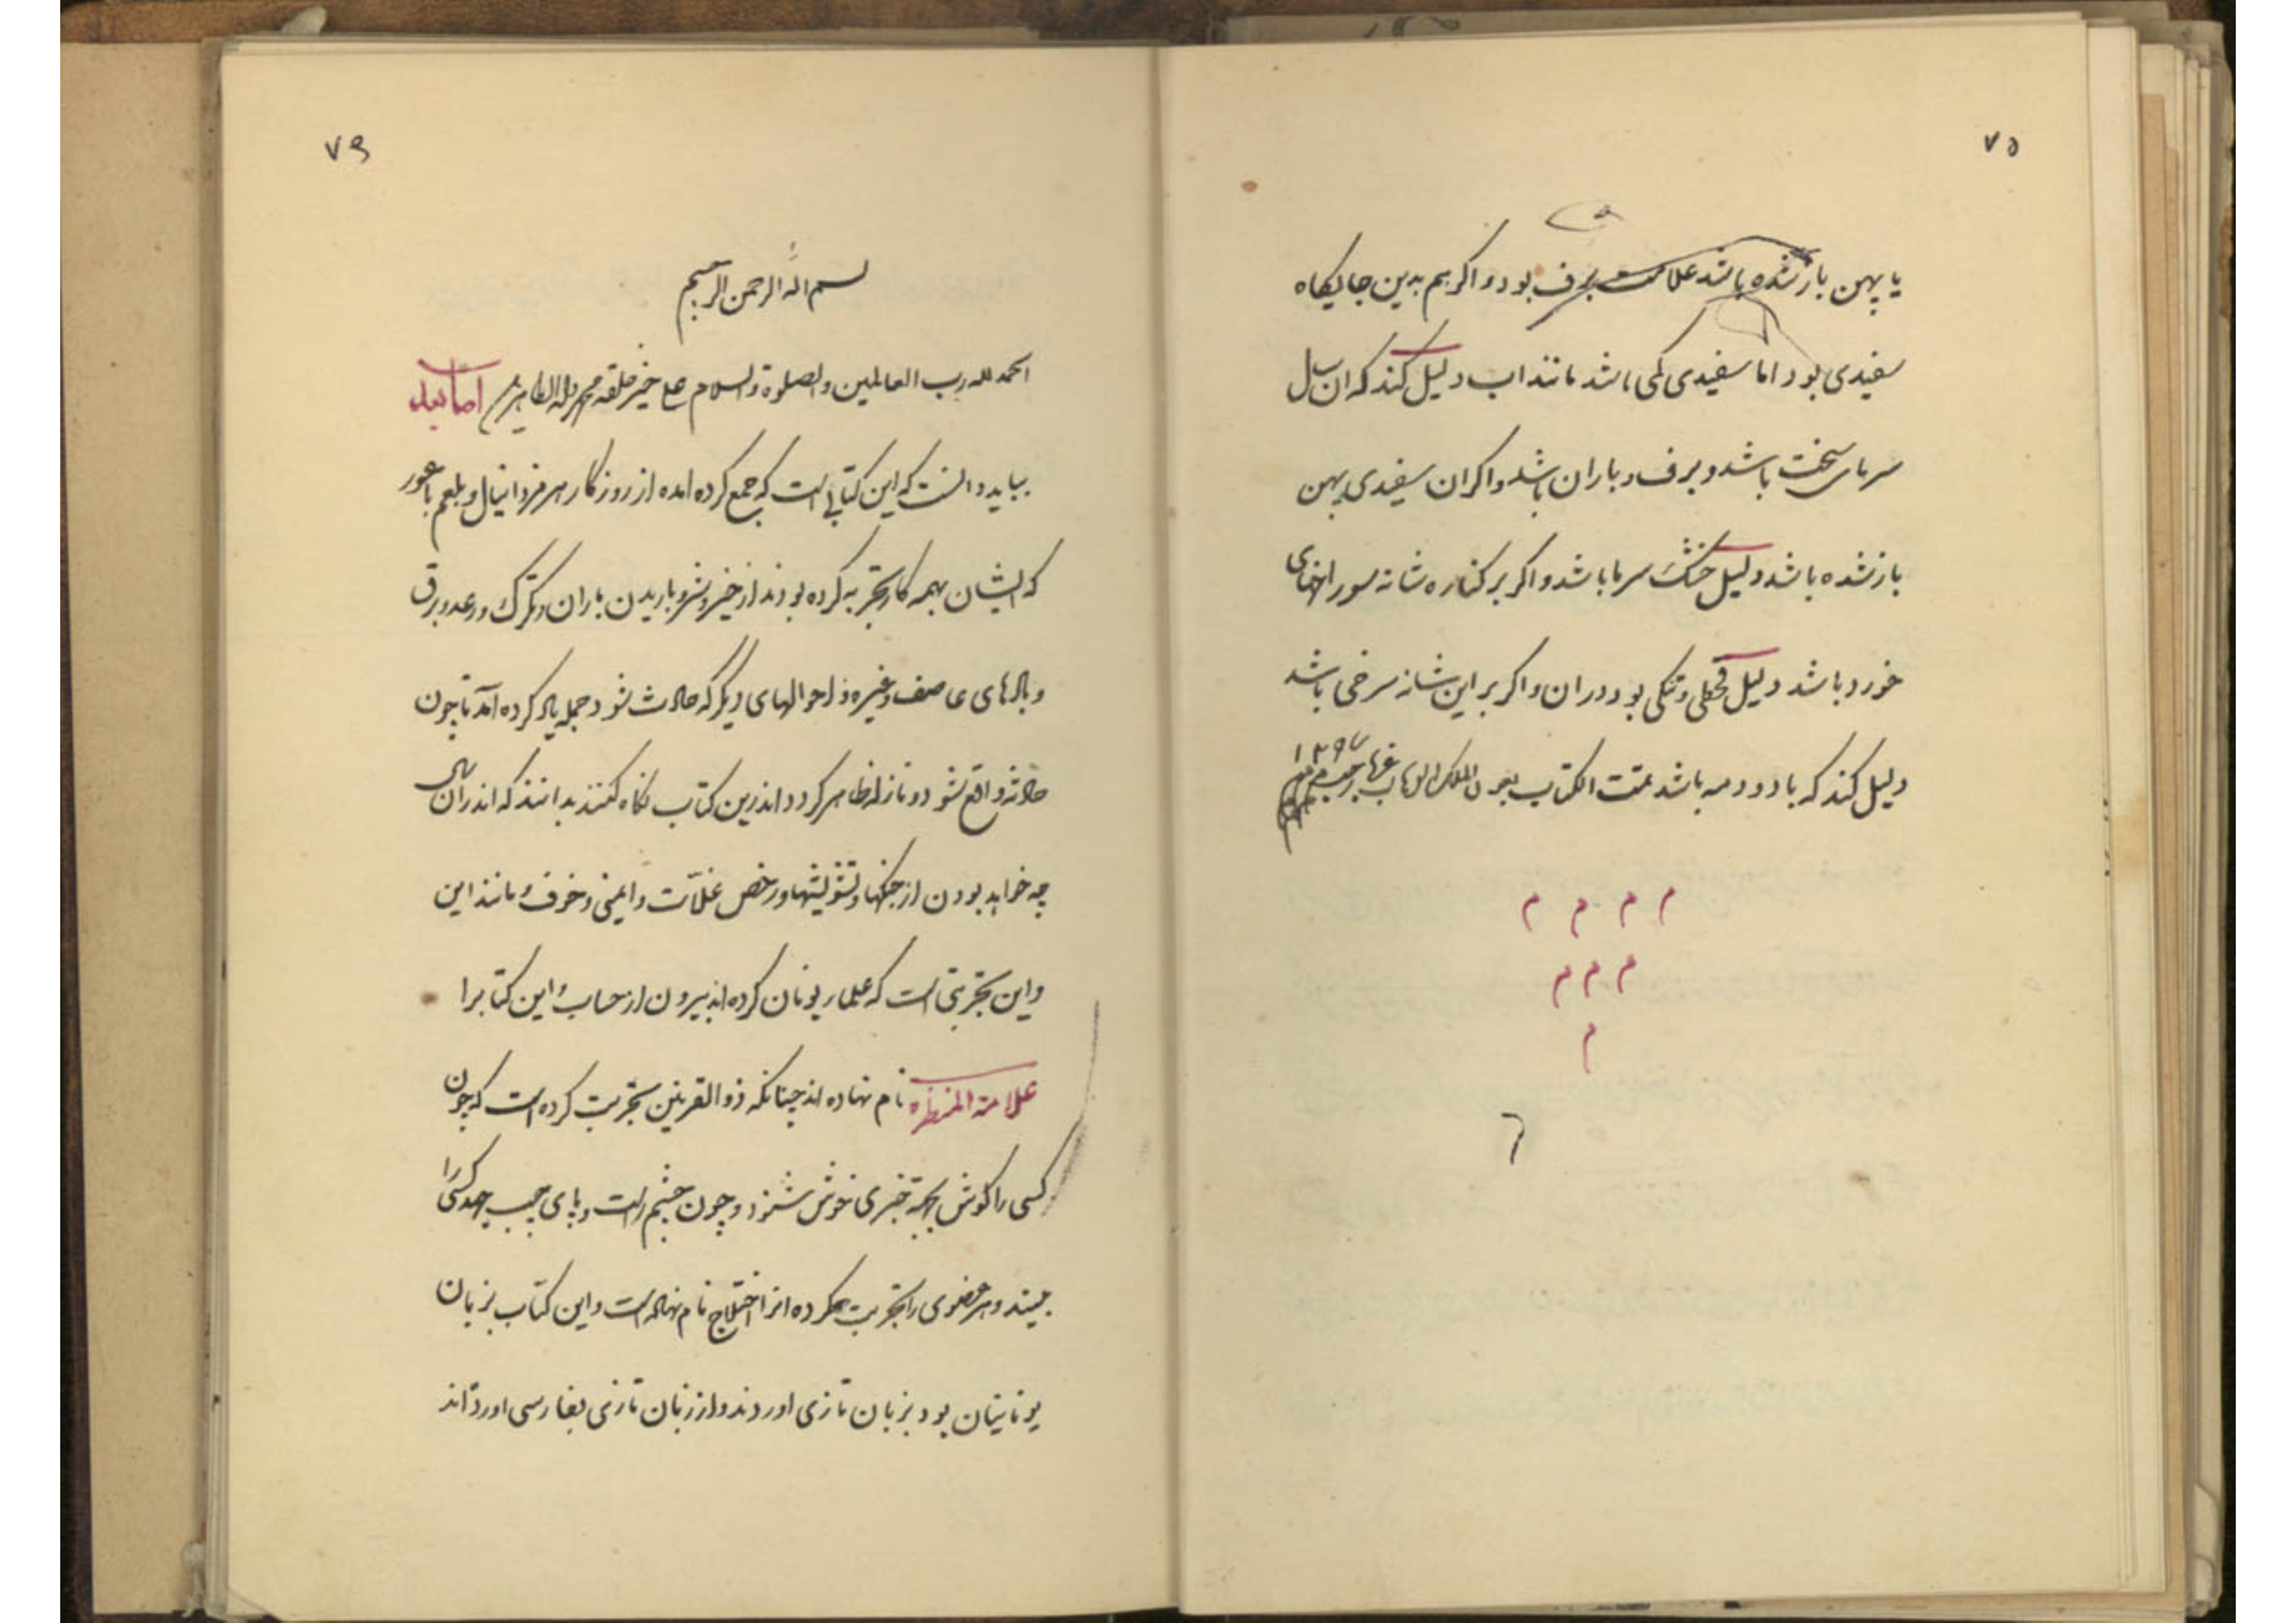 ۷۵
یا پهن باز شده باشد علامت برف بود و اکر هم بدین جایکاه
سفیدی بود اما سفیدی کمی باشد مانند اب دلیل کند که ان سال
سرمای سخت باشد و برف و باران باشد و اکر ان سفیدی پهن
باز نشده باشد دلیل خشک سرما باشد و اکر بر کناره شانه سوراخهای
خورد باشد دلیل قحطی و تنکی بود در ان و اکر بر این شانه سرخی باشد
دلیل کند که باد و دمه باشد تمت الکتاب بعون الملک الوهاب
م م م م
م م م
م
۷۶
بسم اله الرحمن الرحیم
الحمد لله رب العالمین والصلوة والسلام علی خیر خلقه محمد واله الطاهرین اما بعد
بباید دانست که این کتابی است که جمع کرده امده از روزکار هرمز دانیال و بلعم باعور
که ایشان بهمه کار تجربه کرده بودند از خیر و شر و باریدن باران و تکرک و رعد و برق
و بادهای عاصف و غیره و احوالهای دیکر که حادث شود جمله یاد کرده آمد تا چون
حادثه واقع شود و نازله ظاهر کردد اندرین کتاب نکاه کنند بدانند که اندران سال
چه خواهد بودن از جنکها و تشویشها و رخص غلّات و ایمنی و خوف و مانند این
و این تجربتی است که علماء یونان کرده اند بیرون از حساب و این کتابرا
علامة المنظره نام نهاده اند چنانکه ذو القرنین تجربت کرده است که چون
کسی را کوش بجهد خبری خوش شنود و چون چشم راست و پای چپ جهد کسی را
بیند و هر عضوی را تجربت بکرده انرا اختلاج نام نهاده است و این کتاب بزبان
یونانیان بود بزبان تازی اوردند و از زبان تازی بفارسی اورده اند